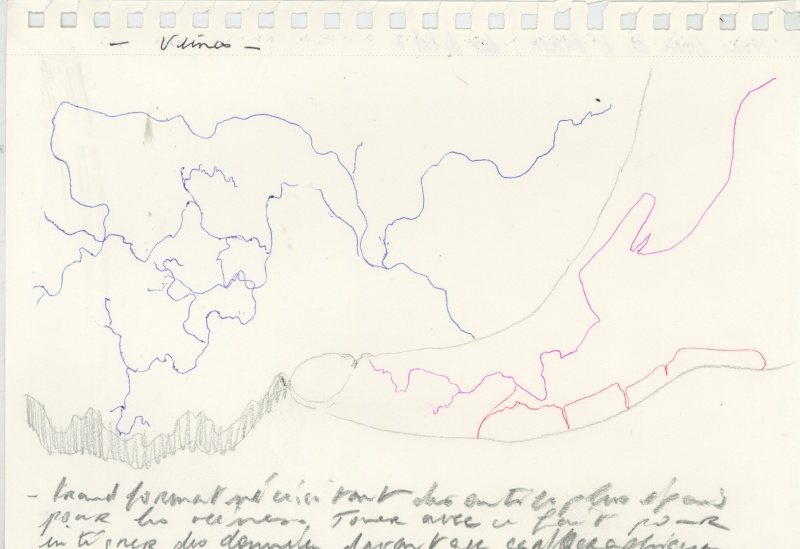 - Veines -
- Grand format nécessitant des outils plus épais
pour les veines. Jouer avec ce fait pour
intégrer des données davantage